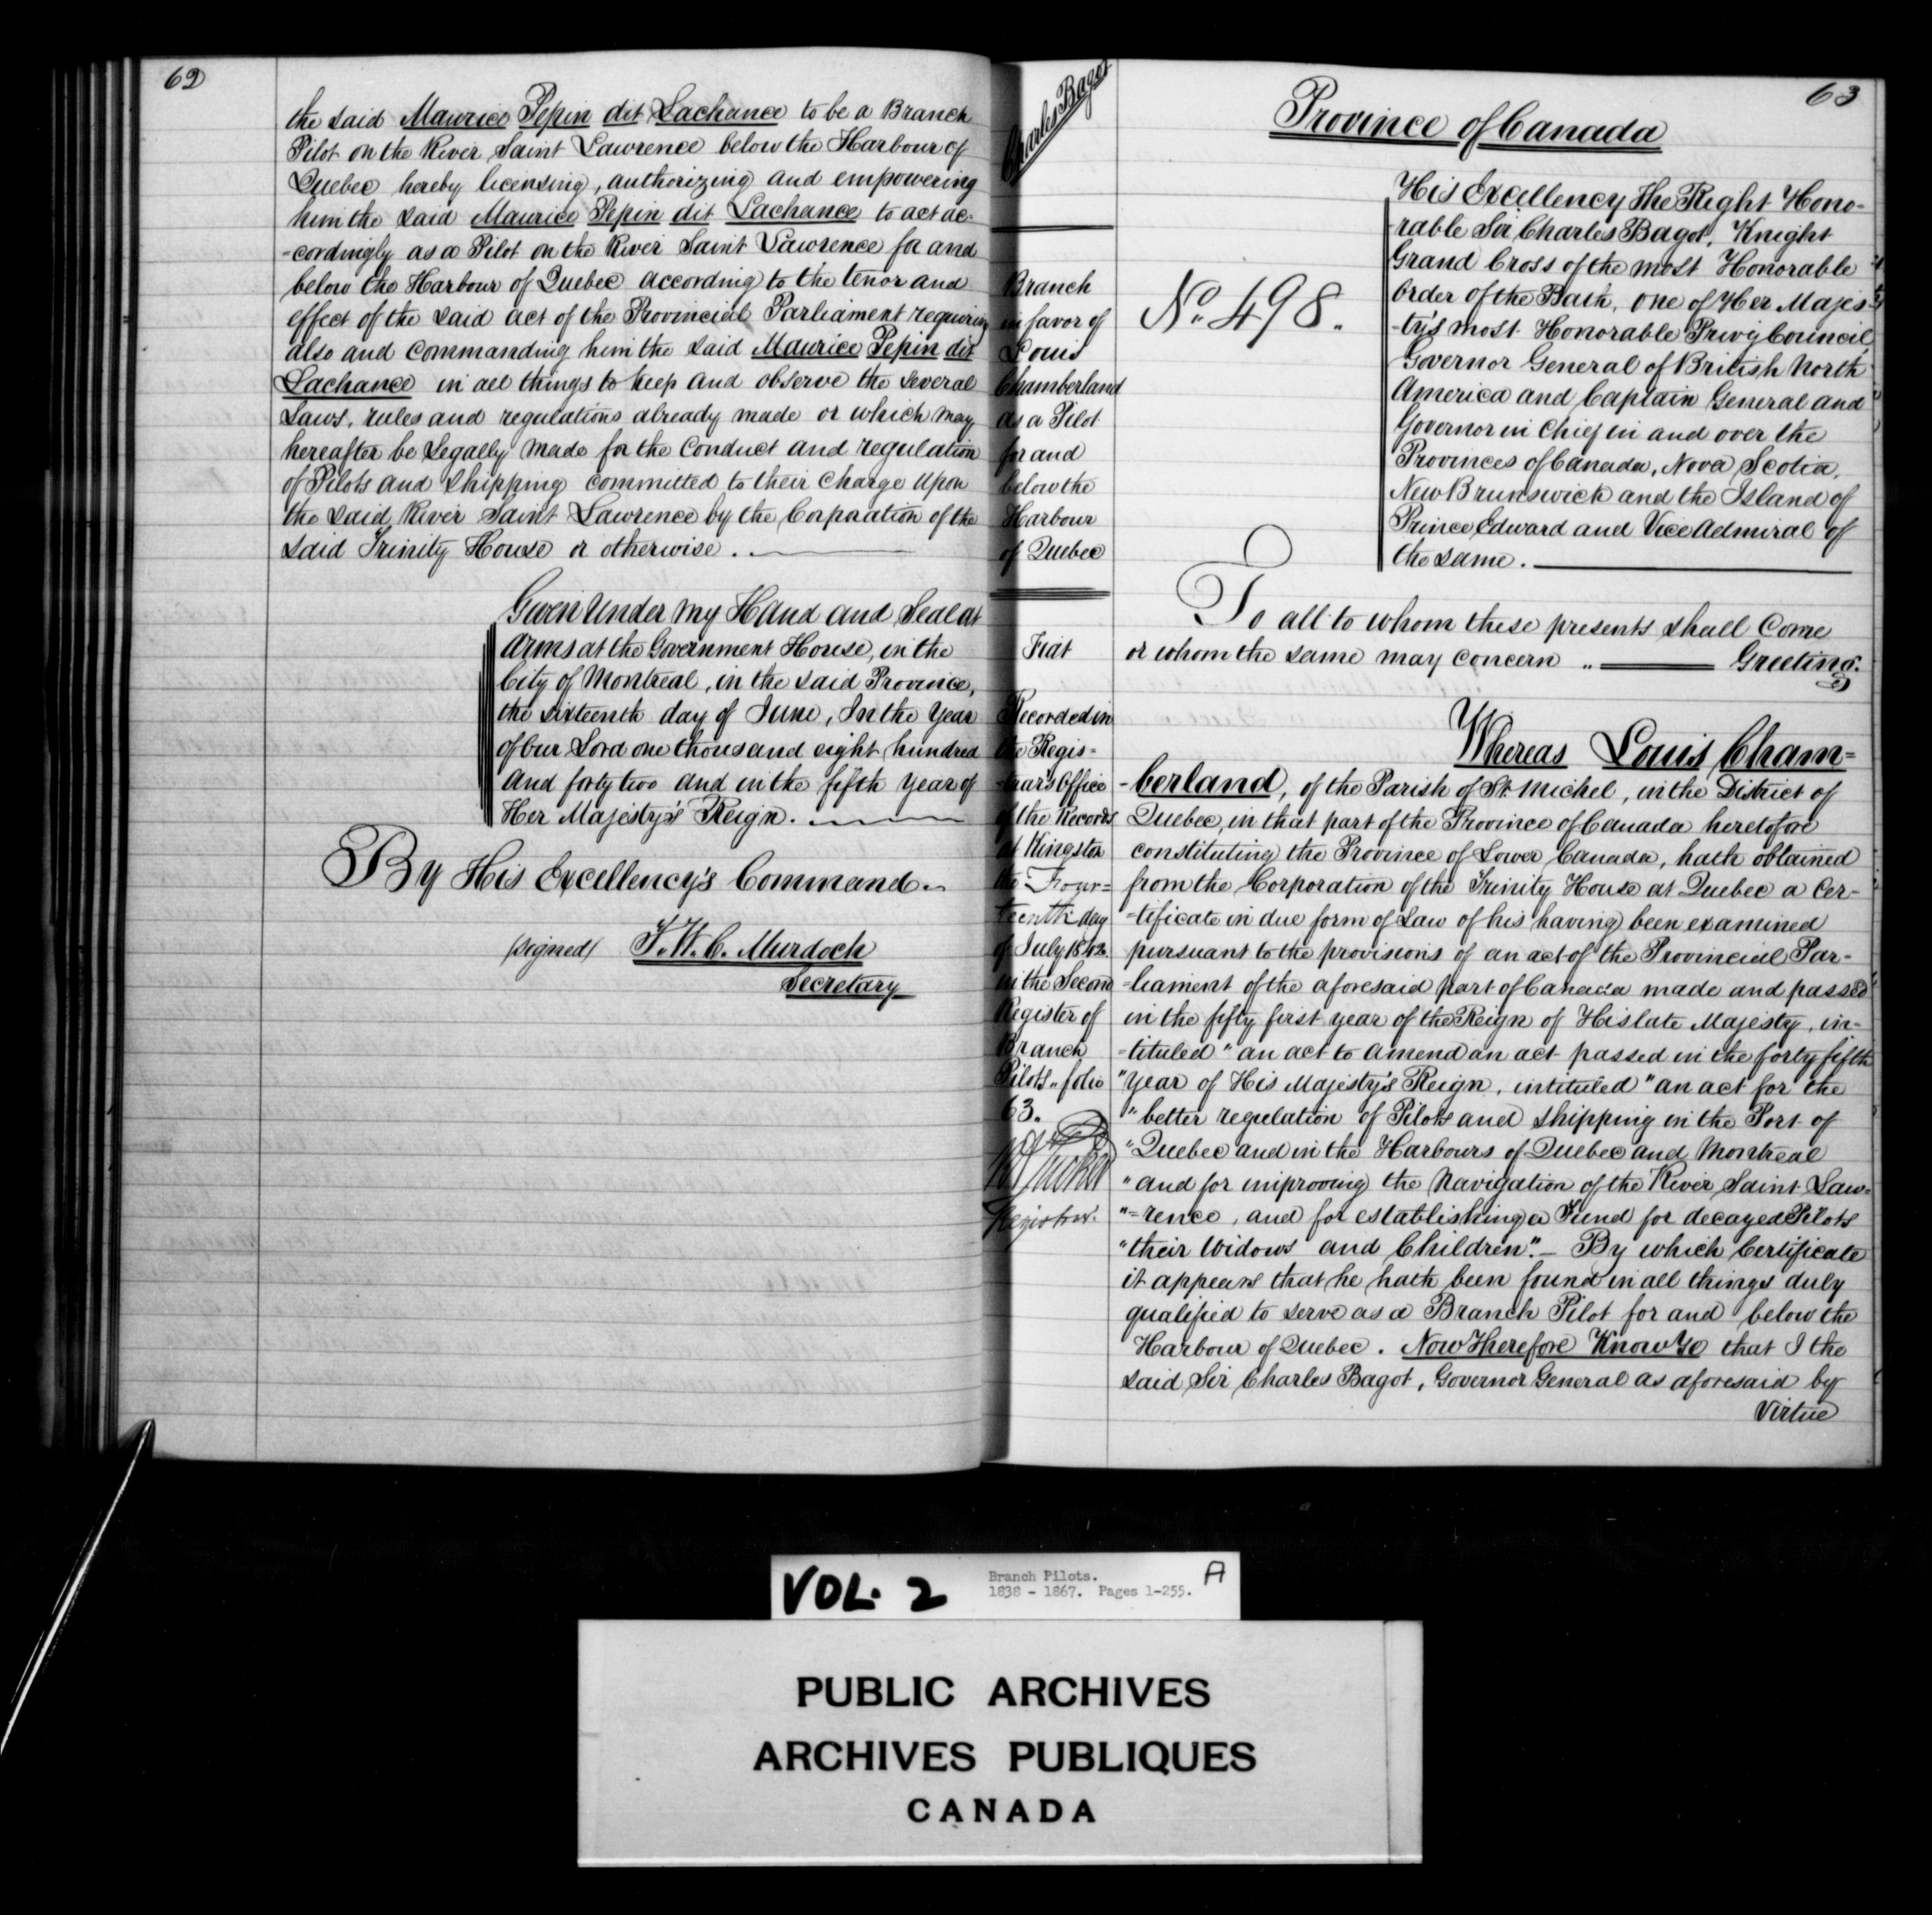 62
the said Maurice Pepin dit Lachance to be a Branch
Pilot on the River Saint Lawrence below the Harbour of
Quebec hereby licensing, authorizing and empowering
him the said Maurice Pepin dit Lachance to act ac-
-cordingly as a Pilot on the River Saint Lawrence for and
below the Harbour of Quebec according to the tenor and
effect of the said act of the Provincial Parliament requiring
also and commanding him the said Maurice Pepin dit
Lachance in all things to keep and observe the several
Laws, rules and regulations already made or which may
hereafter be Legally made for the conduct and regulation
of Pilots and Shipping committed to their charge upon
the said River Saint Lawrence by the Corporation of the
said Trinity House or otherwise.
Given Under my Hand and Seal at
Arms at the Government House, in the
City of Montreal, in the said Province,
the sixteenth day of June, In the Year
of Our Lord one thousand eight hundred
and forty two and in the fifth year of
Her Majesty's Reign.
By His Excellency's Command.
(signed) T. W. C. Murdoch
Secretary
Charles Bagot
Branch
in favor of
Louis
Chamberland
as a Pilot
for and
below the
Harbour
of Quebec
Fiat
Recorded in
the Regis=
-trar's Office
of the Records
at Kingston
the Four=
teenth day
of July 1842.
in the Second
Register of
Branch
Pilots " folio
63.
Registrar.
63
Province of Canada
No. 498.
His Excellency The Right Hono-
-rable Sir Charles Bagot, Knight
Grand Cross of the most Honorable
Order of the Bath, one of Her Majes-
-ty's most Honorable Privy Council,
Governor General of British North
America and Captain General and
Governor in Chief in and over the
Provinces of Canada, Nova Scotia,
New Brunswick and the Island of
Prince Edward and Vice Admiral of
the same.
To all to whom these presents shall Come
or whom the same may concern " Greeting.
Whereas Louis Cham=
-berland, of the Parish of St. Michel, in the District of
Quebec, in that part of the Province of Canada heretofore
constituting the Province of Lower Canada, hath obtained
from the Corporation of the Trinity House at Quebec a Cer-
=tificate in due form of Law of his having been examined
pursuant to the provisions of an act of the Provincial Par-
=liament of the aforesaid part of Canada made and passed
in the fifty first year of the Reign of His late Majesty, in-
=tituled "an act to amend an act passed in the forty fifth
"year of His Majesty's Reign, intituled "an act for the
"better regulation of Pilots and Shipping in the Port of
"Quebec and in the Harbours of Quebec and Montreal
"and for improving the Navigation of the River Saint Law=
"=rence, and for establishing a Fund for decayed Pilots
"their Widows and Children". - By which Certificate
it appears that he hath been found in all things duly
qualified to serve as a Branch Pilot for and below the
Harbour of Quebec. Now Therefore Know Ye that I the
said Sir Charles Bagot, Governor General as aforesaid by
Virtue
VOL. 2
Branch Pilots.
1838 - 1867. Pages 1-255.
A
PUBLIC ARCHIVES
ARCHIVES PUBLIQUES
CANADA